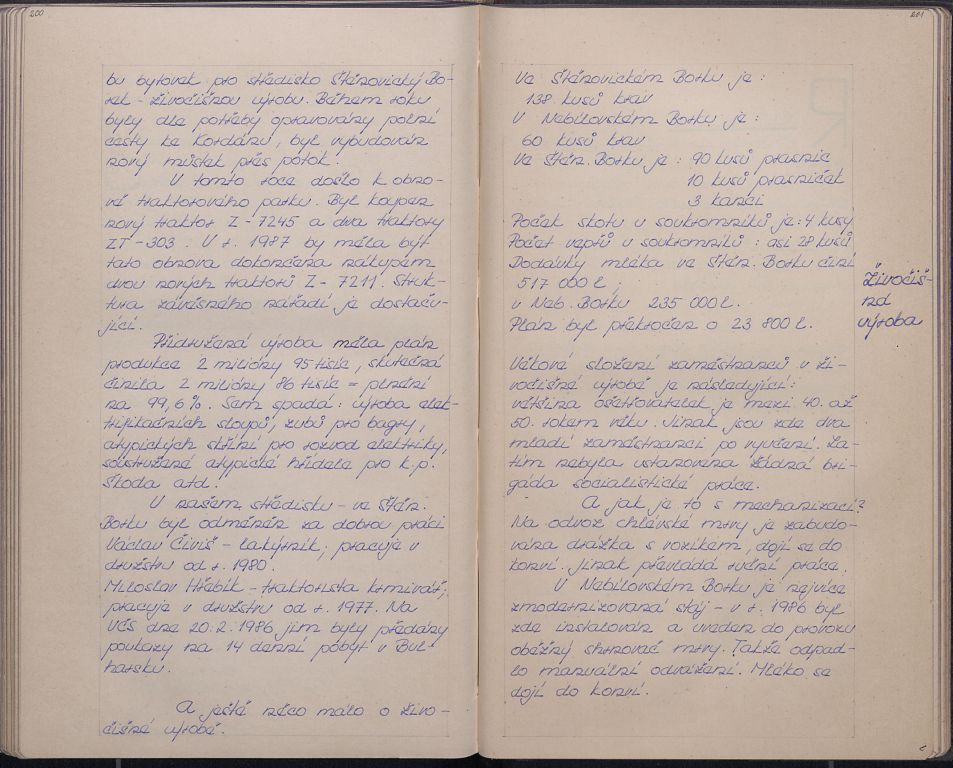 200
bu bytovek pro středisko Štěnovický Bo-
rek - živočišnou výrobu. Během roku
byly dle potřeby opravovány polní
cesty ke Kordánu, byl vybudován
nový můstek přes potok.
V tomto roce došlo k obno-
vě traktorového parku. Byl koupen
nový traktor Z - 7245 a dva traktory
ZT - 303. V r. 1987 by měla být
tato obnova dokončena nákupem
dvou nových traktorů Z - 7211. Struk-
tura závěsného nářadí je dostaču-
jící.
Přidružená výroba měla plán
produkce 2 milióny 95 tisíc, skutečná
činila 2 milióny 86 tisíc = plnění
na 99,6 %. Sem spadá: výroba elek-
trifikačních sloupů, zubů pro bagry,
atypických skříní pro rozvod elektriky,
soustružené atypické hřídele pro k.p.
Škoda atd.
V našem středisku - ve Štěn.
Borku byl odměněn za dobrou práci
Václav Čiviš - lakýrník, pracuje v
družstvu od r. 1980.
Miloslav Hřebík - traktorista krmivář,
pracuje v družstvu od r. 1977. Na
VČS dne 20. 2. 1986 jim byly předány
poukazy na 14 denní pobyt v Bul-
harsku.
A ještě něco málo o živo-
čišné výrobě.
201
Ve Štěnovickém Borku je:
138 kusů krav
V Nebílovském Borku je:
60 kusů krav
Ve Štěn. Borku je: 90 kusů prasnic
10 kusů prasniček
3 kanci
Počet skotu u soukromníků je: 4 kusy
Počet vepřů u soukromníků: asi 28 kusů
Dodávky mléka ve Štěn. Borku činí
517 000 l,
v Neb. Borku 235 000 l.
Plán byl překročen o 23 800 l.
Živočiš-
ná
výroba
Věkové složení zaměstnanců v ži-
vočišné výrobě je následující:
většina ošetřovatelek je mezi 40. až
50. rokem věku. Jinak jsou zde dva
mladí zaměstnanci po vyučení. Za-
tím nebyla ustanovena žádná bri-
gáda socialistické práce.
A jak je to s mechanizací?
Na odvoz chlévské mrvy je zabudo-
vána drážka s vozíkem, dojí se do
konví. Jinak převládá ruční práce.
V Nebílovském Borku je nejvíce
zmodernizovaná stáj - v r. 1986 byl
zde instalován a uveden do provozu
oběžný shrnovač mrvy. Takže odpad-
lo manuální odvážení. Mléko se
dojí do konví.